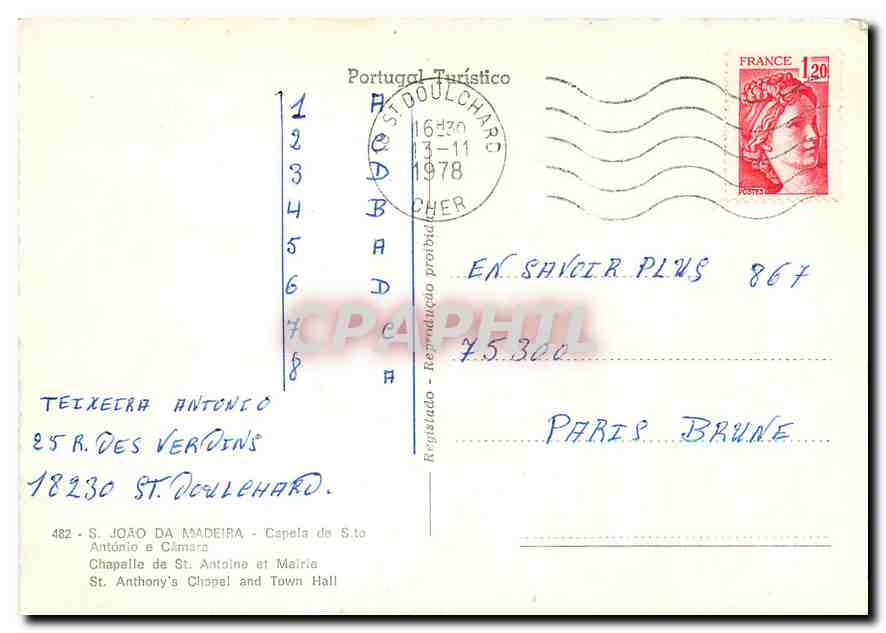 Portugal Turístico
FRANCE 1,20
POSTES
ST DOULCHARD
16H30
13-11
1978
CHER
1 A
2 C
3 D
4 B
5 A
6 D
7 C
8 A
EN SAVOIR PLUS 867
75300
PARIS BRUNE
TEIXEIRA ANTONIO
25 R. DES VERDINS
18230 ST. DOULCHARD.
Registado - Reprodução proibida
CPAPHIL
482 - S. JOÃO DA MADEIRA - Capela de S.to
António e Câmara
Chapelle de St. Antoine et Mairie
St. Anthony's Chapel and Town Hall